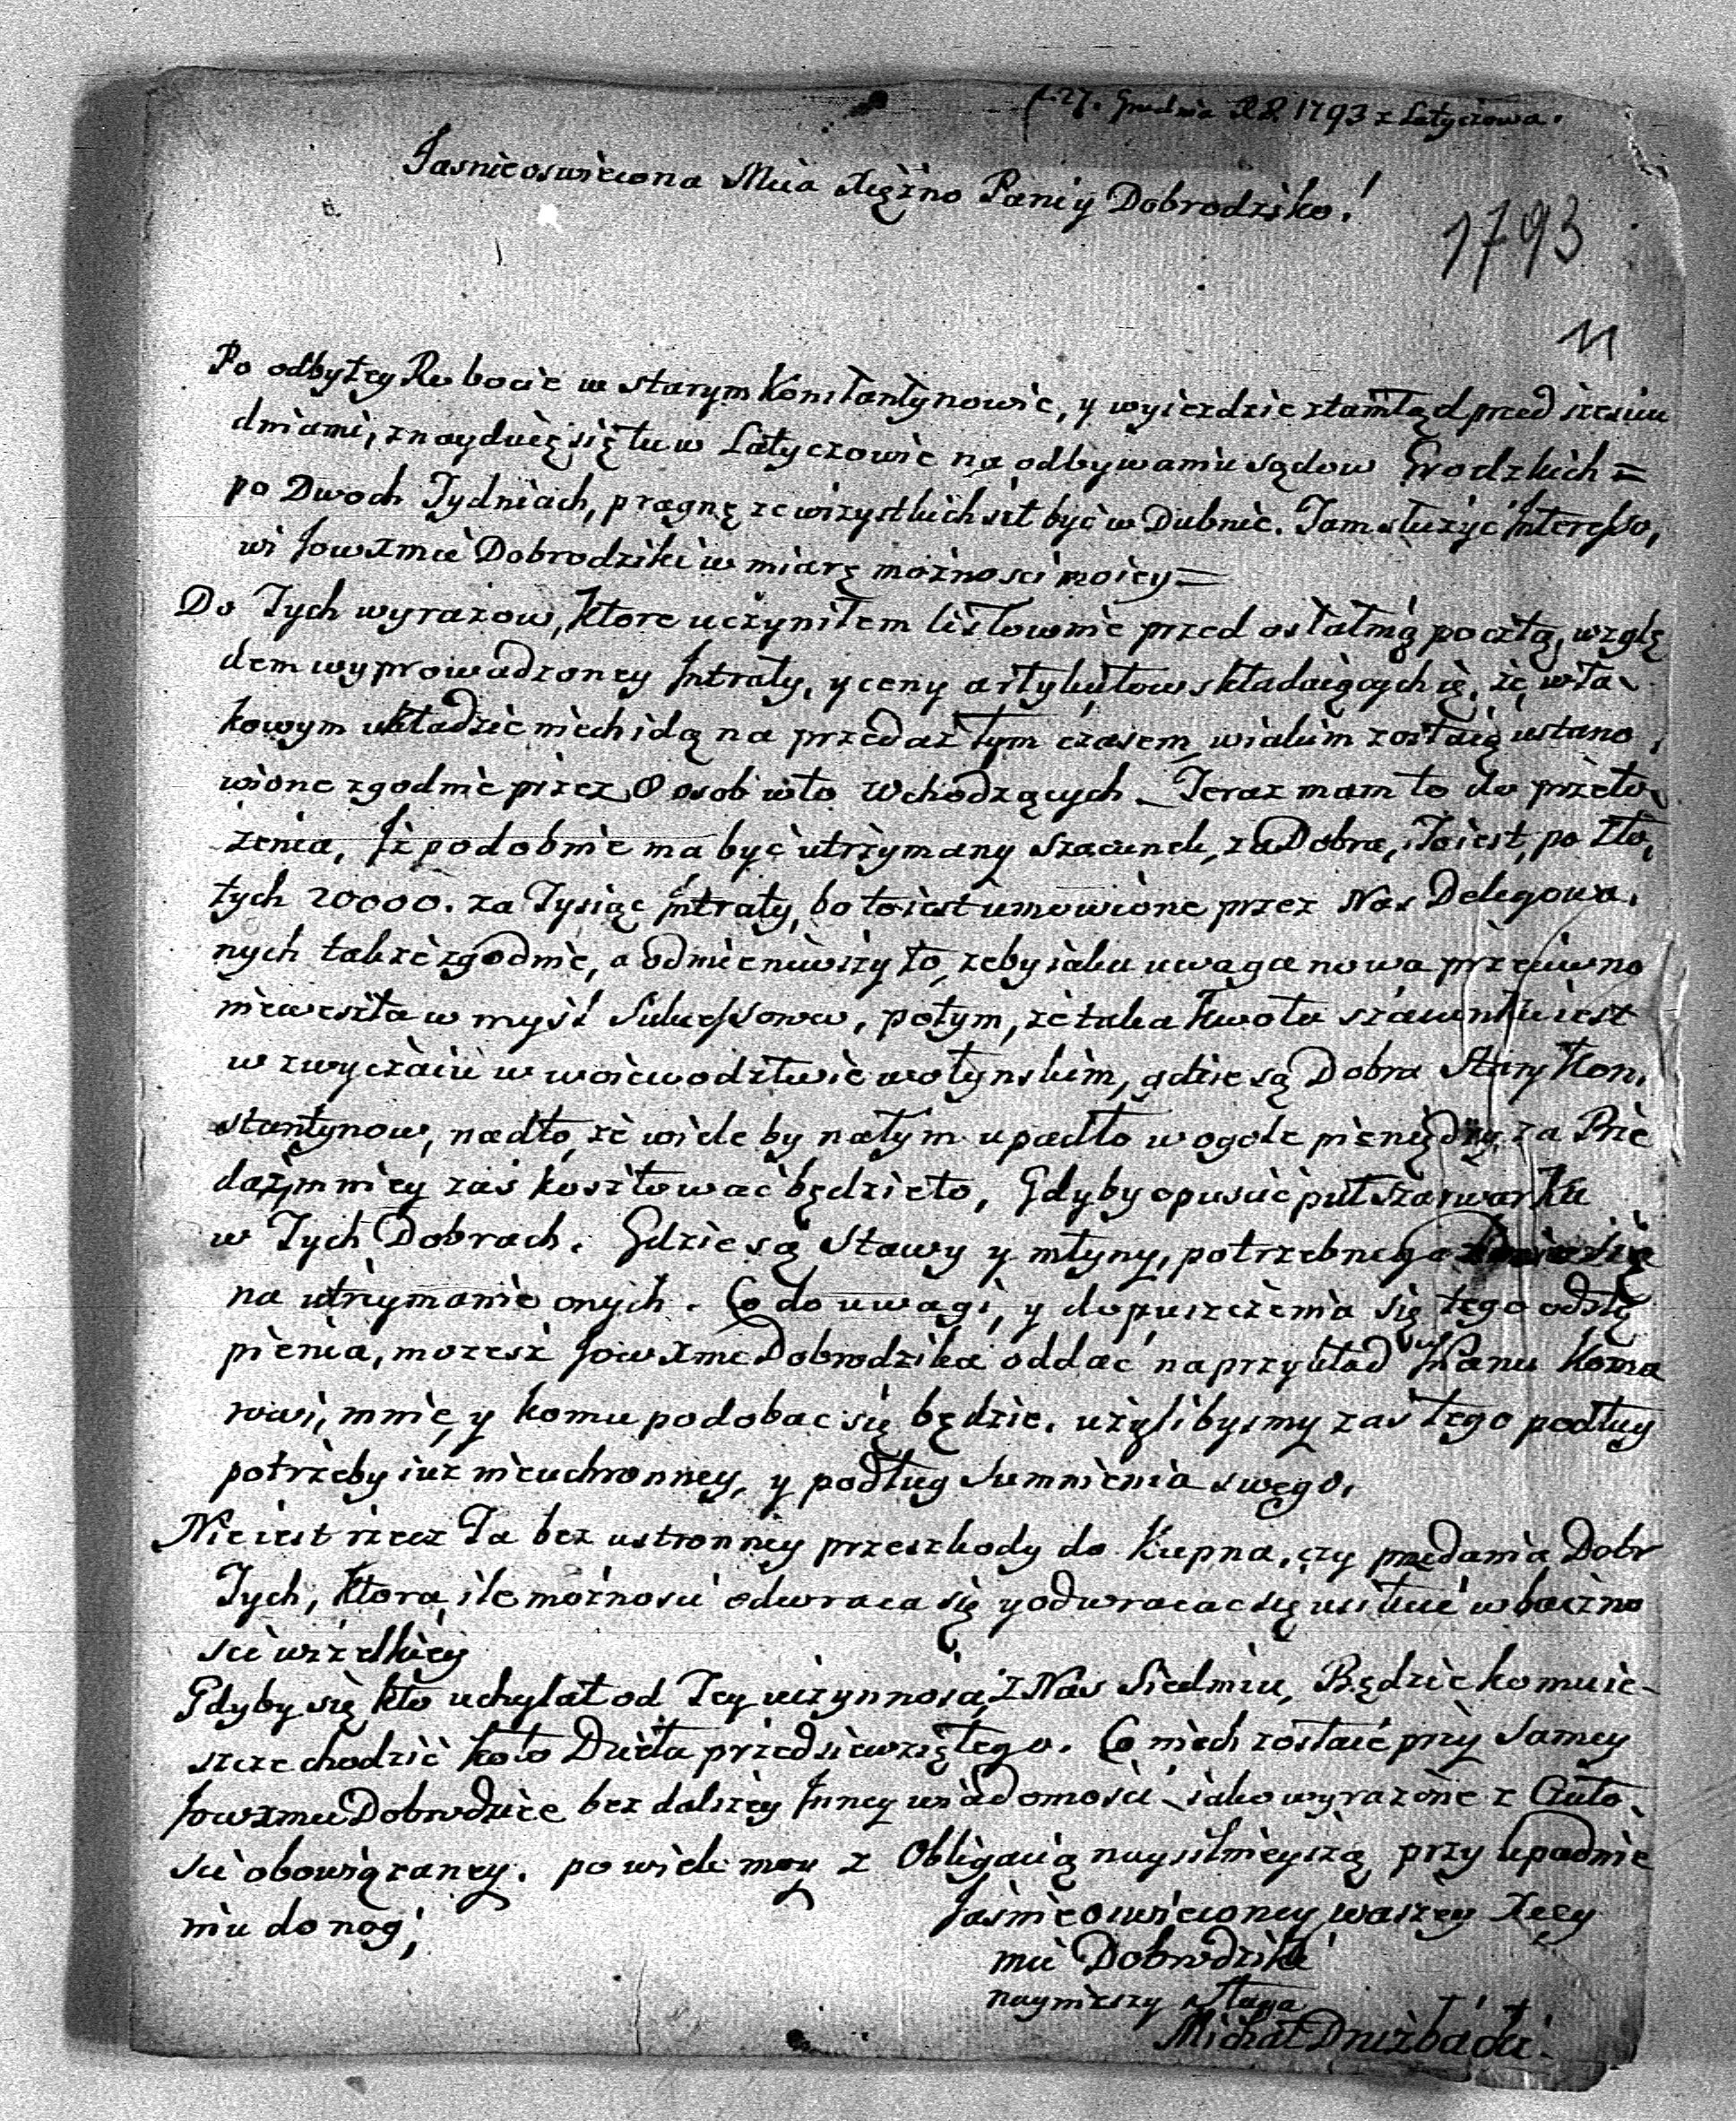 d. 27. Grudnia R. P. 1793 z Latyczowa.
Jasnieoswiecona Mcia Xiężno Paniy Dobrodziko!
1793
11
Po odbytey Robocie w starym Konstantynowie, y wyiezdzie ztamtąd przed szesciu
dniami, znayduię się tu w Latyczowie na odbywaniu sądow Grodzkich =
po Dwoch Tydniach, pragnę ze wszystkich sił być w Dubnie. Tam służyć Interesso,
wi Jowxmci Dobrodziki w miarę możnosci moiey =
Do Tych wyrazow, ktore uczyniłem listownie przed ostatnią pocztą, wzglę
dem wyprowadzoney Intraty, y ceny artykułow składaiących ią, że w ta
kowym układzie niech idą na przedaż tym czasem, w iakim zostaią ustano,
wione zgodnie przez 8 osob w to wchodzących _ Teraz mam to do przeło
żenia, Iż podobnie ma być utrzymany szacunek, za Dobra, to iest, po zło,
tych 20000. za Tysiąc Intraty, bo to iest umowione przez Nas Delegowa,
nych także zgodnie, a odmieniwszy to, zeby iaka uwaga nowa przeciwno
nieweszła w myśl Sukcessorow, potym, że taka kwota szacunku iest
w zwyczaiu w woiewodztwie wołynskim, gdzie są Dobra Stary Kon,
stantynow, nadto, że wiele by natym upadło w ogole pieniędzy za Prze
daż, mniey zaś kosztować będzie to, Gdyby opuscić puł szarwarku
w Tych Dobrach. Gdzie są Stawy y młyny, potrzebnego
na utrzymanie onych. Co do uwagi, y dopuszczenia się tego odstę
pienia, możesz Jowxmc Dobrodzika oddać naprzykład Panu Koma
rowi, mnie, y komu podobac się będzie. użylibysmy zas tego podług
potrzeby iuz nieuchronney, y podług Sumnienia swego.
Nie iest rzecz Ta bez ustronney przeszkody do Kupna, czy przedania Dobr
Tych, ktora ile możnosci odwraca się y odwracac się usiłuie w baczno
sci wszelkiey
Gdyby się kto uchylał od Tey uczynnosci z Nas Siedmiu, Będzie komu ie-
szcze chodzić koło Dzieła przedsiewziętego. Co niech zostaie przy Samey
Jowxmci Dobrodzice bez dalszey Inney wiadomosci, iako wyrażone z Czuło
sci obowiązaney. po wiele moy z Obligacią naysilnieyszą przy upadnie
niu do nog,
Jasnieoswieconey waszey Xcey
mci Dobrodziki
nayniższy sługa
Michał Drużbacki.